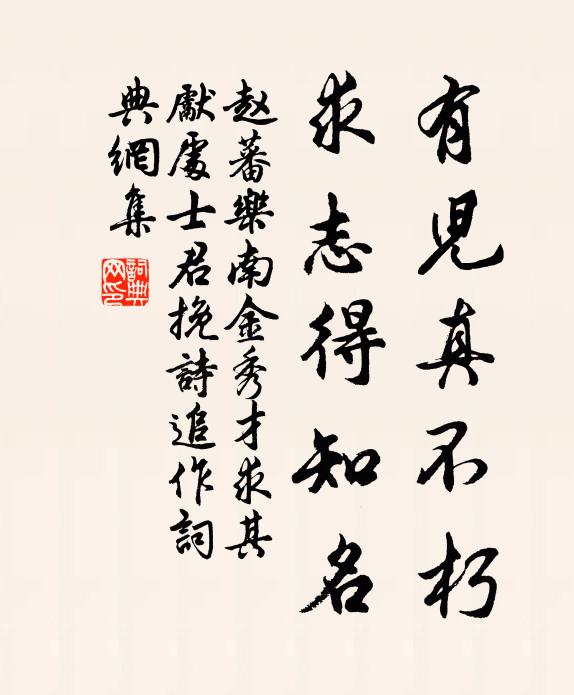 有児真不朽
求志得知名
赵蕃樂南金秀才求其
獻處士君挽詩追作詞
典網集
詞典網印